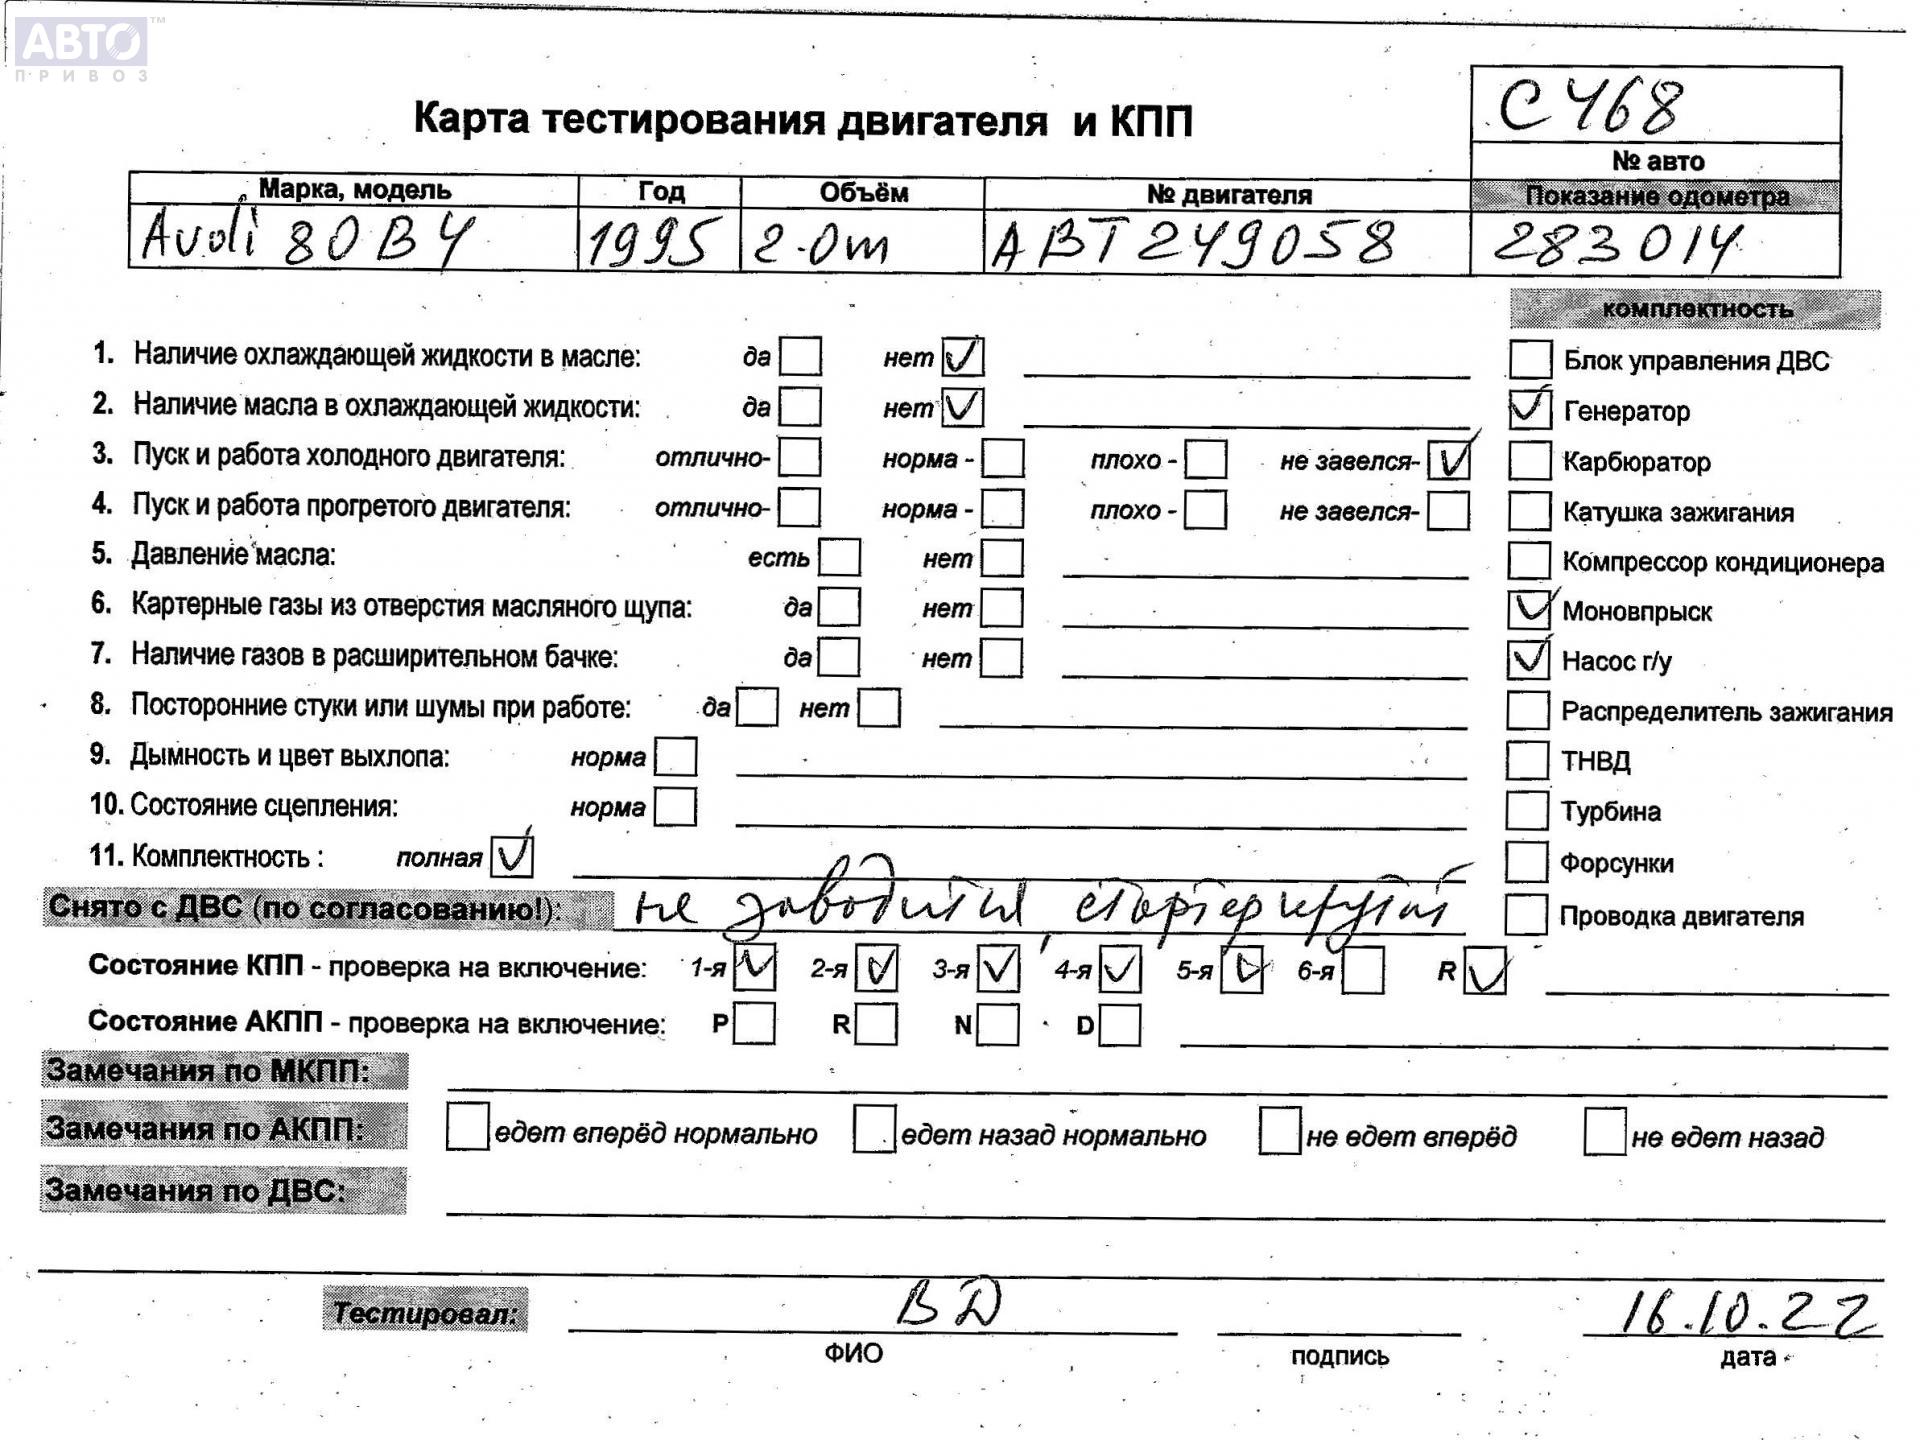 АВТО™
ПРИВОЗ
Карта тестирования двигателя и КПП
С 468
№ авто
Марка, модель Год Объём № двигателя Показание одометра
Audi 80 B4 1995 2.0m ABT249058 283014
комплектность
1. Наличие охлаждающей жидкости в масле: да нет ✓ Блок управления ДВС
2. Наличие масла в охлаждающей жидкости: да нет ✓ ✓ Генератор
3. Пуск и работа холодного двигателя: отлично- норма - плохо - не завелся- ✓ Карбюратор
4. Пуск и работа прогретого двигателя: отлично- норма - плохо - не завелся- Катушка зажигания
5. Давление масла: есть нет Компрессор кондиционера
6. Картерные газы из отверстия масляного щупа: да нет ✓ Моновпрыск
7. Наличие газов в расширительном бачке: да нет ✓ Насос г/у
8. Посторонние стуки или шумы при работе: да нет Распределитель зажигания
9. Дымность и цвет выхлопа: норма ТНВД
10. Состояние сцепления: норма Турбина
11. Комплектность : полная ✓ Форсунки
Снято с ДВС (по согласованию!): не заводится, стартер крутит Проводка двигателя
Состояние КПП - проверка на включение: 1-я ✓ 2-я ✓ 3-я ✓ 4-я ✓ 5-я ✓ 6-я R ✓
Состояние АКПП - проверка на включение: P R N D
Замечания по МКПП:
Замечания по АКПП: едет вперёд нормально едет назад нормально не едет вперёд не едет назад
Замечания по ДВС:
Тестировал: ВД 16.10.22
ФИО подпись дата